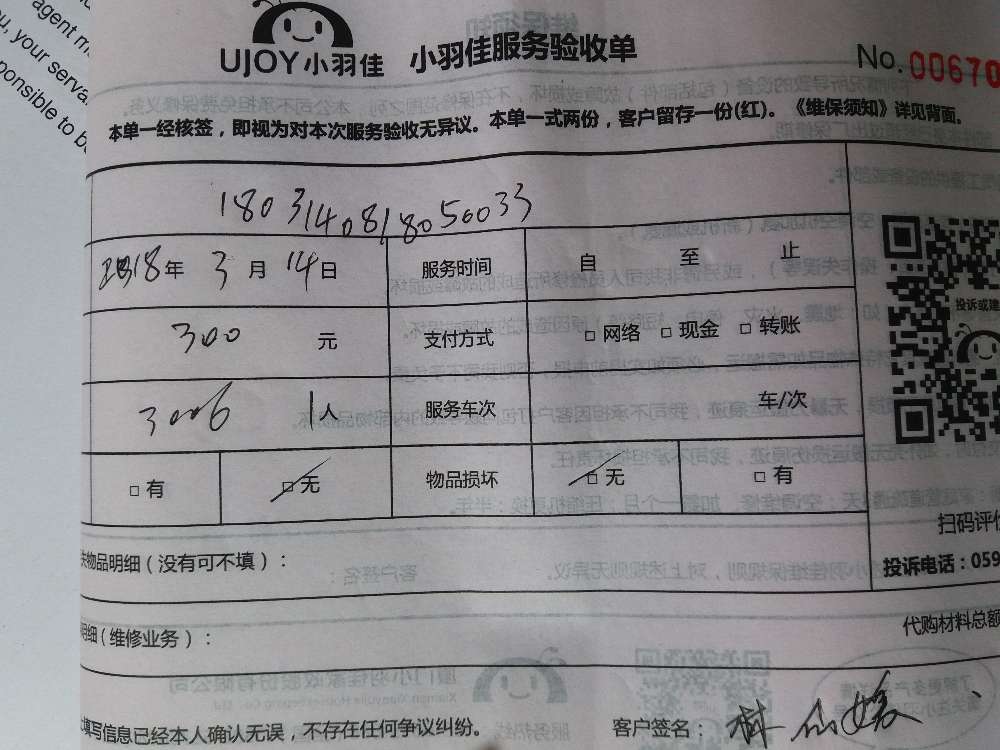 agent m
u, your serva
ponsible to b
UJOY小羽佳 小羽佳服务验收单 No. 00670
本单一经核签，即视为对本次服务验收无异议。本单一式两份，客户留存一份(红)。《维保须知》详见背面。
180314081805003​3
18年 3月 14日 服务时间 自 至 止
300 元 支付方式 □ 网络 □ 现金 □ 转账
3006 1人 服务车次 车/次
□ 有 □ 无 物品损坏 □ 无 □ 有
投诉或建
扫码评价
投诉电话：059
物品明细（没有可不填）：
明细（维修业务）： 代购材料总额
填写信息已经本人确认无误，不存在任何争议纠纷。 客户签名：林